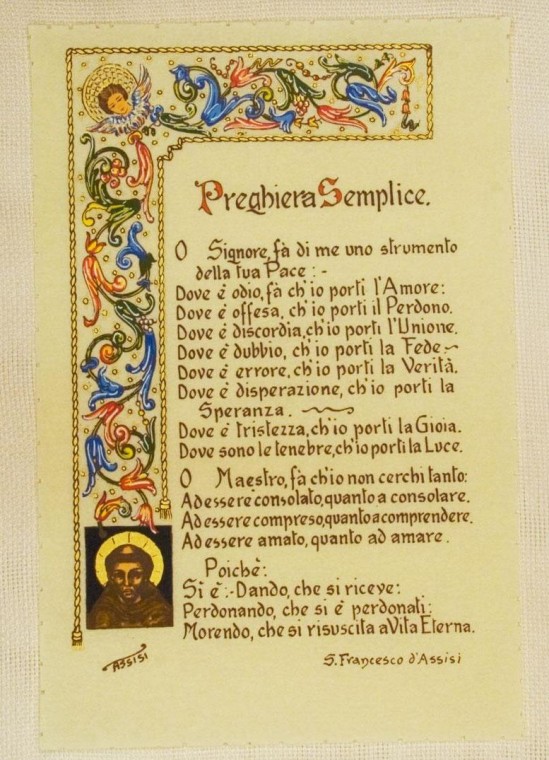 Preghiera Semplice.
O Signore, fà di me uno strumento
della tua Pace : -
Dove è odio, fà ch'io porti l'Amore:
Dove è offesa, ch'io porti il Perdono.
Dove è discordia, ch'io porti l'Unione.
Dove è dubbio, ch'io porti la Fede~
Dove è errore, ch'io porti la Verità.
Dove è disperazione, ch'io porti la
Speranza.
Dove è tristezza, ch'io porti la Gioia.
Dove sono le tenebre, ch'io porti la Luce.
O Maestro, fà ch'io non cerchi tanto:
Ad essere consolato, quanto a consolare.
Ad essere compreso, quanto a comprendere.
Ad essere amato, quanto ad amare.
Poichè:
Si è:-Dando, che si riceve:
Perdonando, che si è perdonati:
Morendo, che si risuscita a Vita Eterna.
ASSISI
S. Francesco d'Assisi